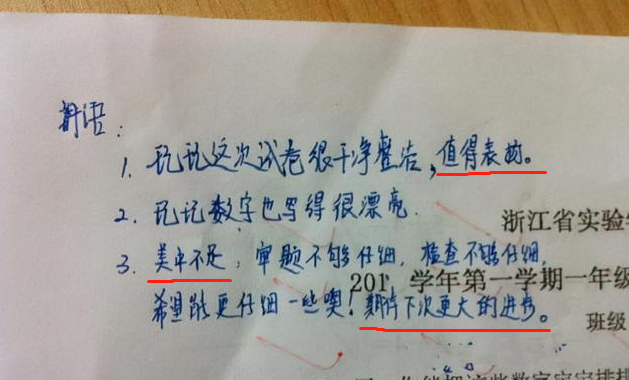 寄语：
1. 这次试卷很干净整洁，值得表扬。
2. 数字也写得很漂亮.
浙江省实验
3. 美中不足，审题不够仔细，检查不够仔细，
201 学年第一学期一年级
希望能更仔细一些噢！期待下次更大的进步。
班级